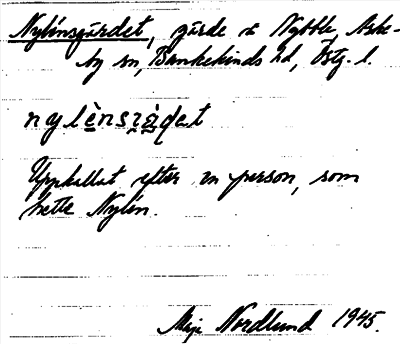 Nylénsgärdet, gärde å Nybble, Aske-
by sn, Bankekinds hd, Östg. l.
nylènsɟàḍet
Uppkallat efter en person, som
hette Nylén.
Maja Nordlund 1945.